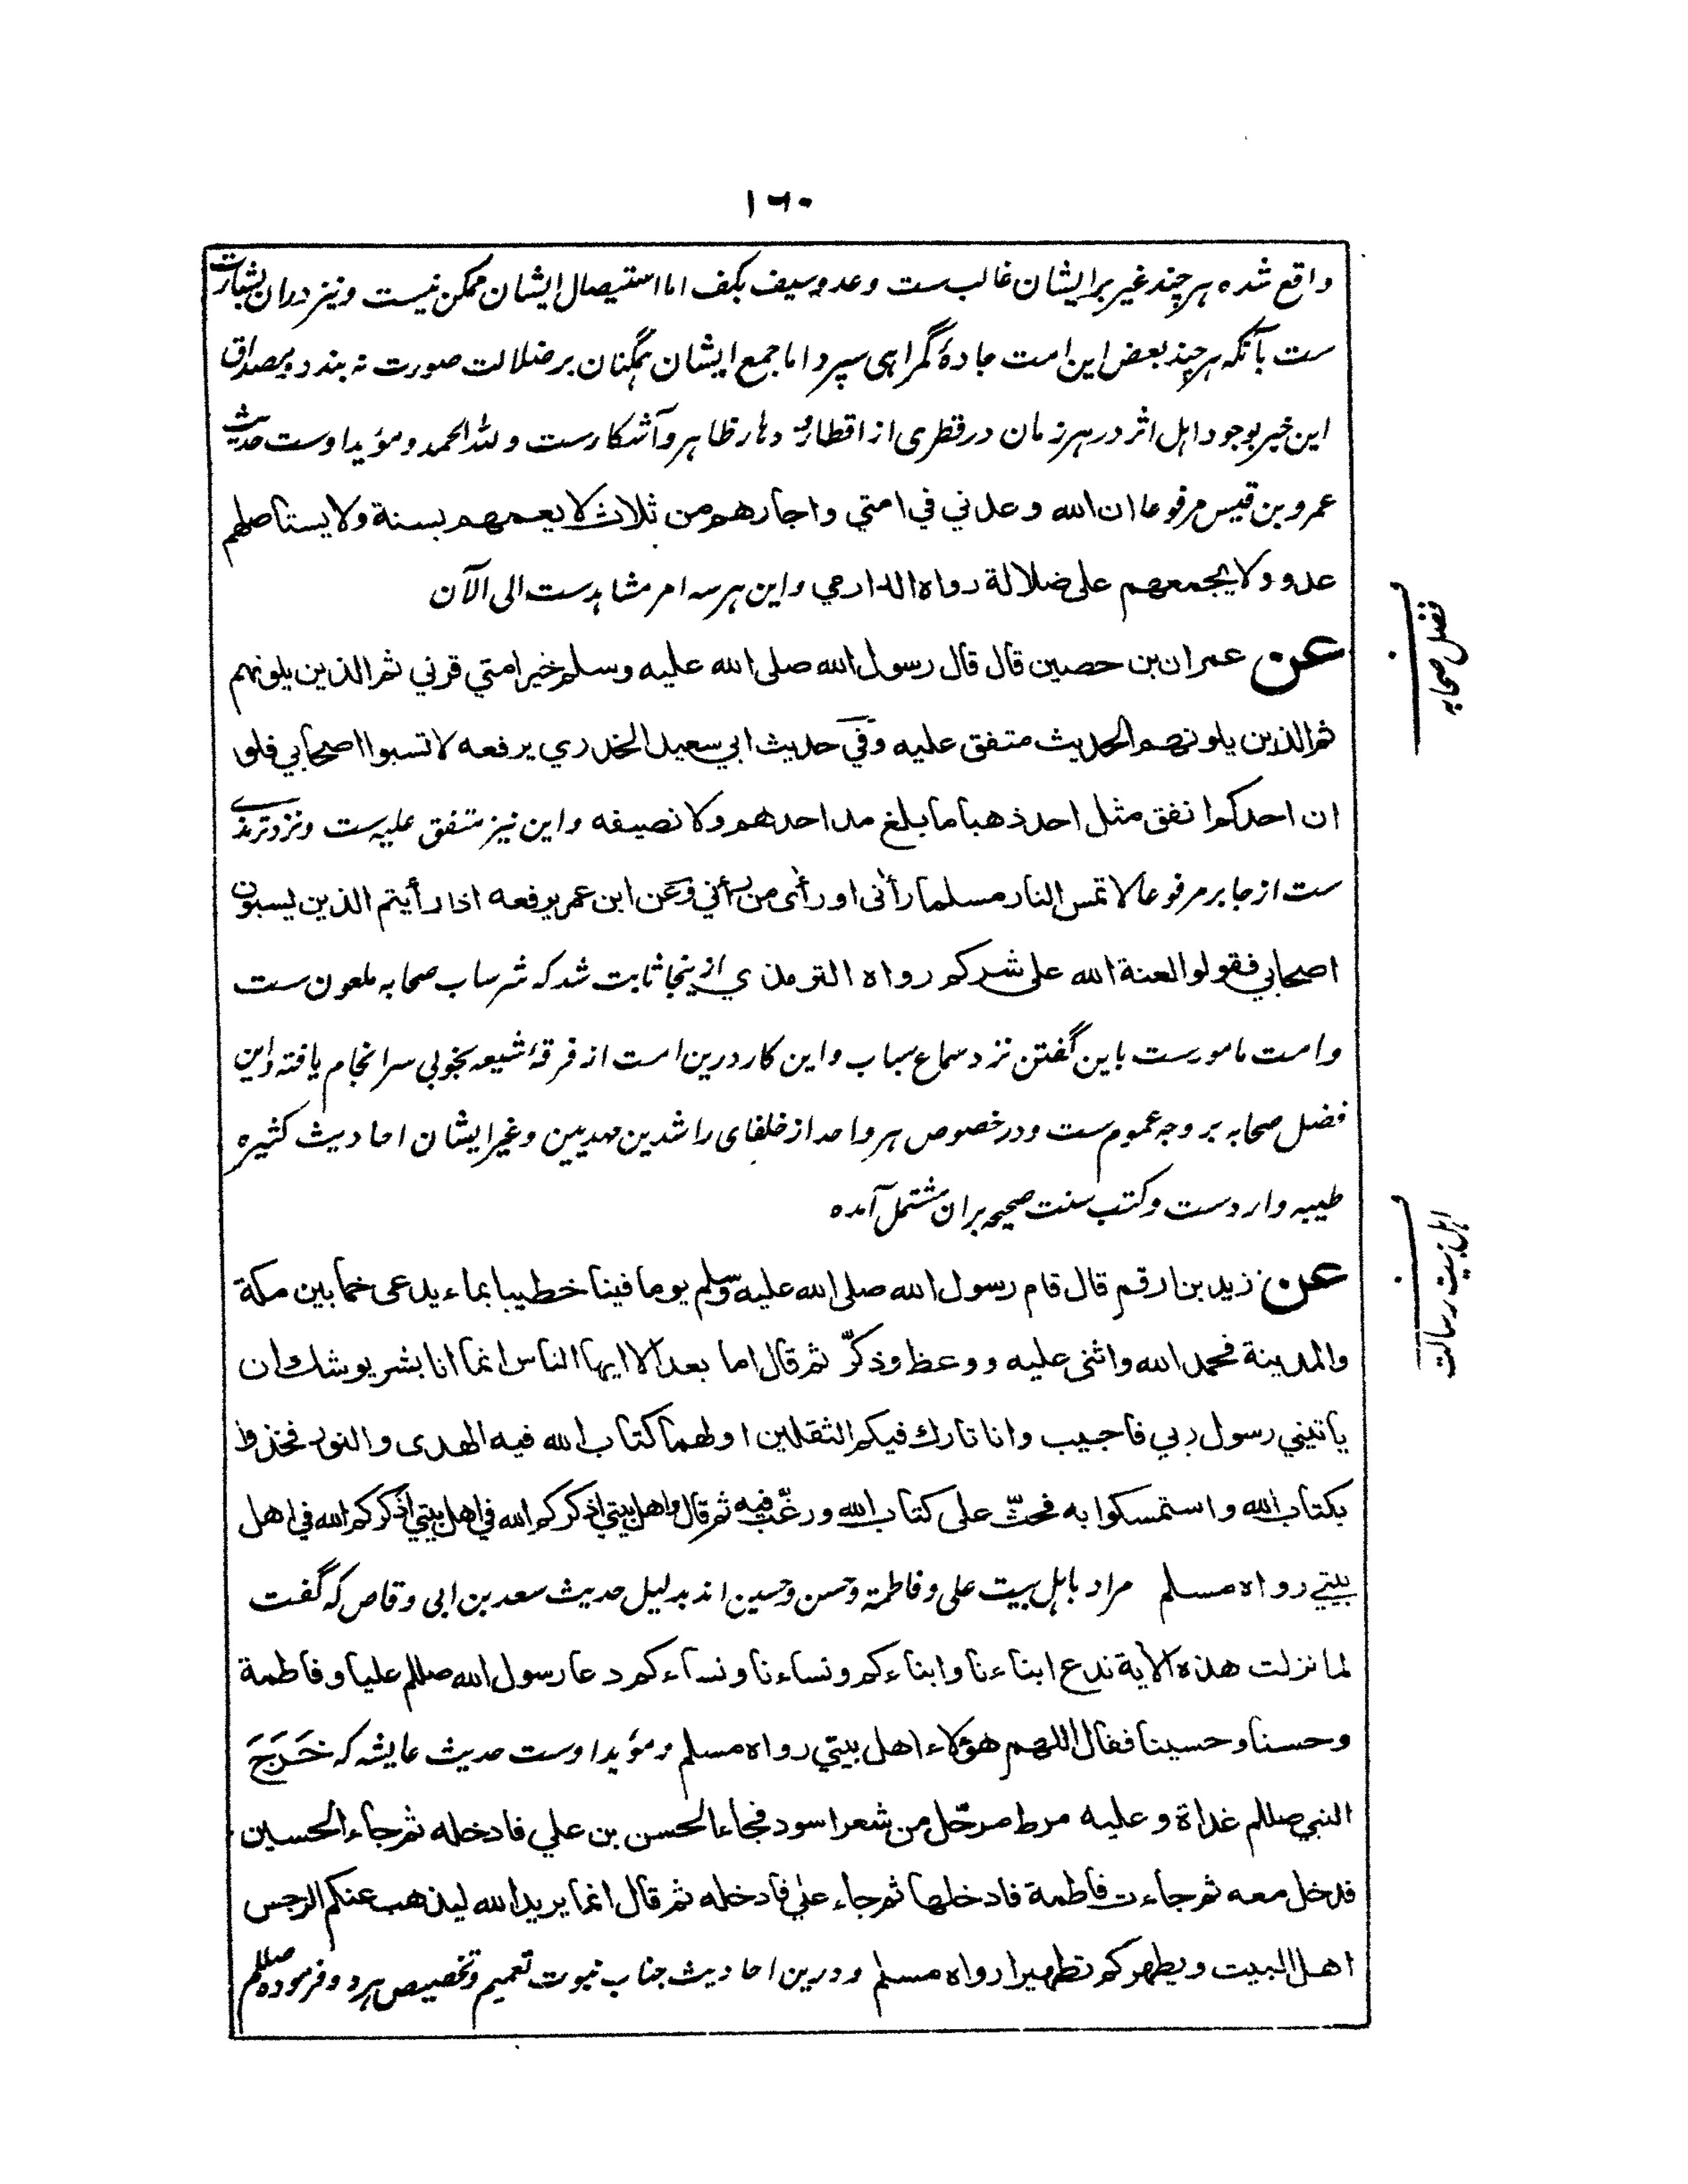 ۱۶۰
واقع شده هرچند غیر بر ایشان غالب ست و عدو سیف بکف اما استیصال ایشان ممکن نیست و نیز دران بشارت
ست بآنکه هرچند بعض این امت جادۀ گمراهی سپرد اما جمع ایشان همگنان بر ضلالت صورت نه بندد و مصداق
این خبر بوجود اهل اثر در هر زمان در قطری از اقطار و دهار ظاهر و آشکارست و لله الحمد و مؤید اوست حدیث
عمرو بن قیس مرفوعا ان الله وعدني في امتي واجارهم من ثلاث لا يعمهم بسنة ولا يستاصلهم
عدو ولا يجمعهم على ضلالة رواه الدارمي و این هر سه امر مشاهدست الی الآن
عن عمران بن حصين قال قال رسول الله صلى الله عليه وسلم خير امتي قرني ثم الذين يلونهم
ثم الذين يلونهم الحديث متفق عليه وفي حديث ابي سعيد الخدري يرفعه لا تسبوا اصحابي فلو
ان احدكم انفق مثل احد ذهبا ما بلغ مد احدهم ولا نصيفه و این نیز متفق علیه ست و نزد ترمذی
ست از جابر مرفوعا لا تمس النار مسلما رأنى او رأى من رأني وعن ابن عمر يرفعه اذا رأيتم الذين يسبون
اصحابي فقولوا لعنة الله على شركم رواه الترمذي ازینجا ثابت شد که شر ساب صحابه ملعون ست
و امت مامورست باین گفتن نزد سماع سباب و این کار درین امت از فرقۀ شیعه بخوبی سرانجام یافته و این
فضل صحابه بر وجه عموم ست و در خصوص هر واحد از خلفای راشدین مهدیین و غیر ایشان احادیث کثیره
طیبه واردست و کتب سنت صحیحه بران مشتمل آمده
عن زيد بن ارقم قال قام رسول الله صلى الله عليه وسلم يوما فينا خطيبا بماء يدعى خما بين مكة
والمدينة فحمد الله واثنى عليه ووعظ وذكّر ثم قال اما بعد الا ايها الناس انما انا بشر يوشك ان
ياتيني رسول ربي فاجيب وانا تارك فيكم الثقلين اولهما كتاب الله فيه الهدى والنور فخذوا
بكتاب الله واستمسكوا به فحثّ على كتاب الله ورغّب فيه ثم قال واهل بيتي اذكركم الله في اهل بيتي اذكركم الله في اهل
بيتي رواه مسلم مراد باهل بیت علی و فاطمة و حسن و حسین اند بدلیل حدیث سعد بن ابی وقاص که گفت
لما نزلت هذه الاية ندع ابناءنا وابناءكم ونساءنا ونساءكم دعا رسول الله صللم عليا وفاطمة
وحسنا وحسينا فقال اللهم هؤلاء اهل بيتي رواه مسلم و مؤید اوست حدیث عایشه که خَرَجَ
النبي صللم غداة وعليه مرط مرحّل من شعر اسود فجاء الحسن بن علي فادخله ثم جاء الحسين
فدخل معه ثم جاءت فاطمة فادخلها ثم جاء علي فادخله ثم قال انما يريد الله ليذهب عنكم الرجس
اهل البيت ويطهركم تطهيرا رواه مسلم و درین احادیث جناب نبوت تعمیم و تخصیص هر دو فرموده صللم
فضل صحابه
اهل بیت رسالت